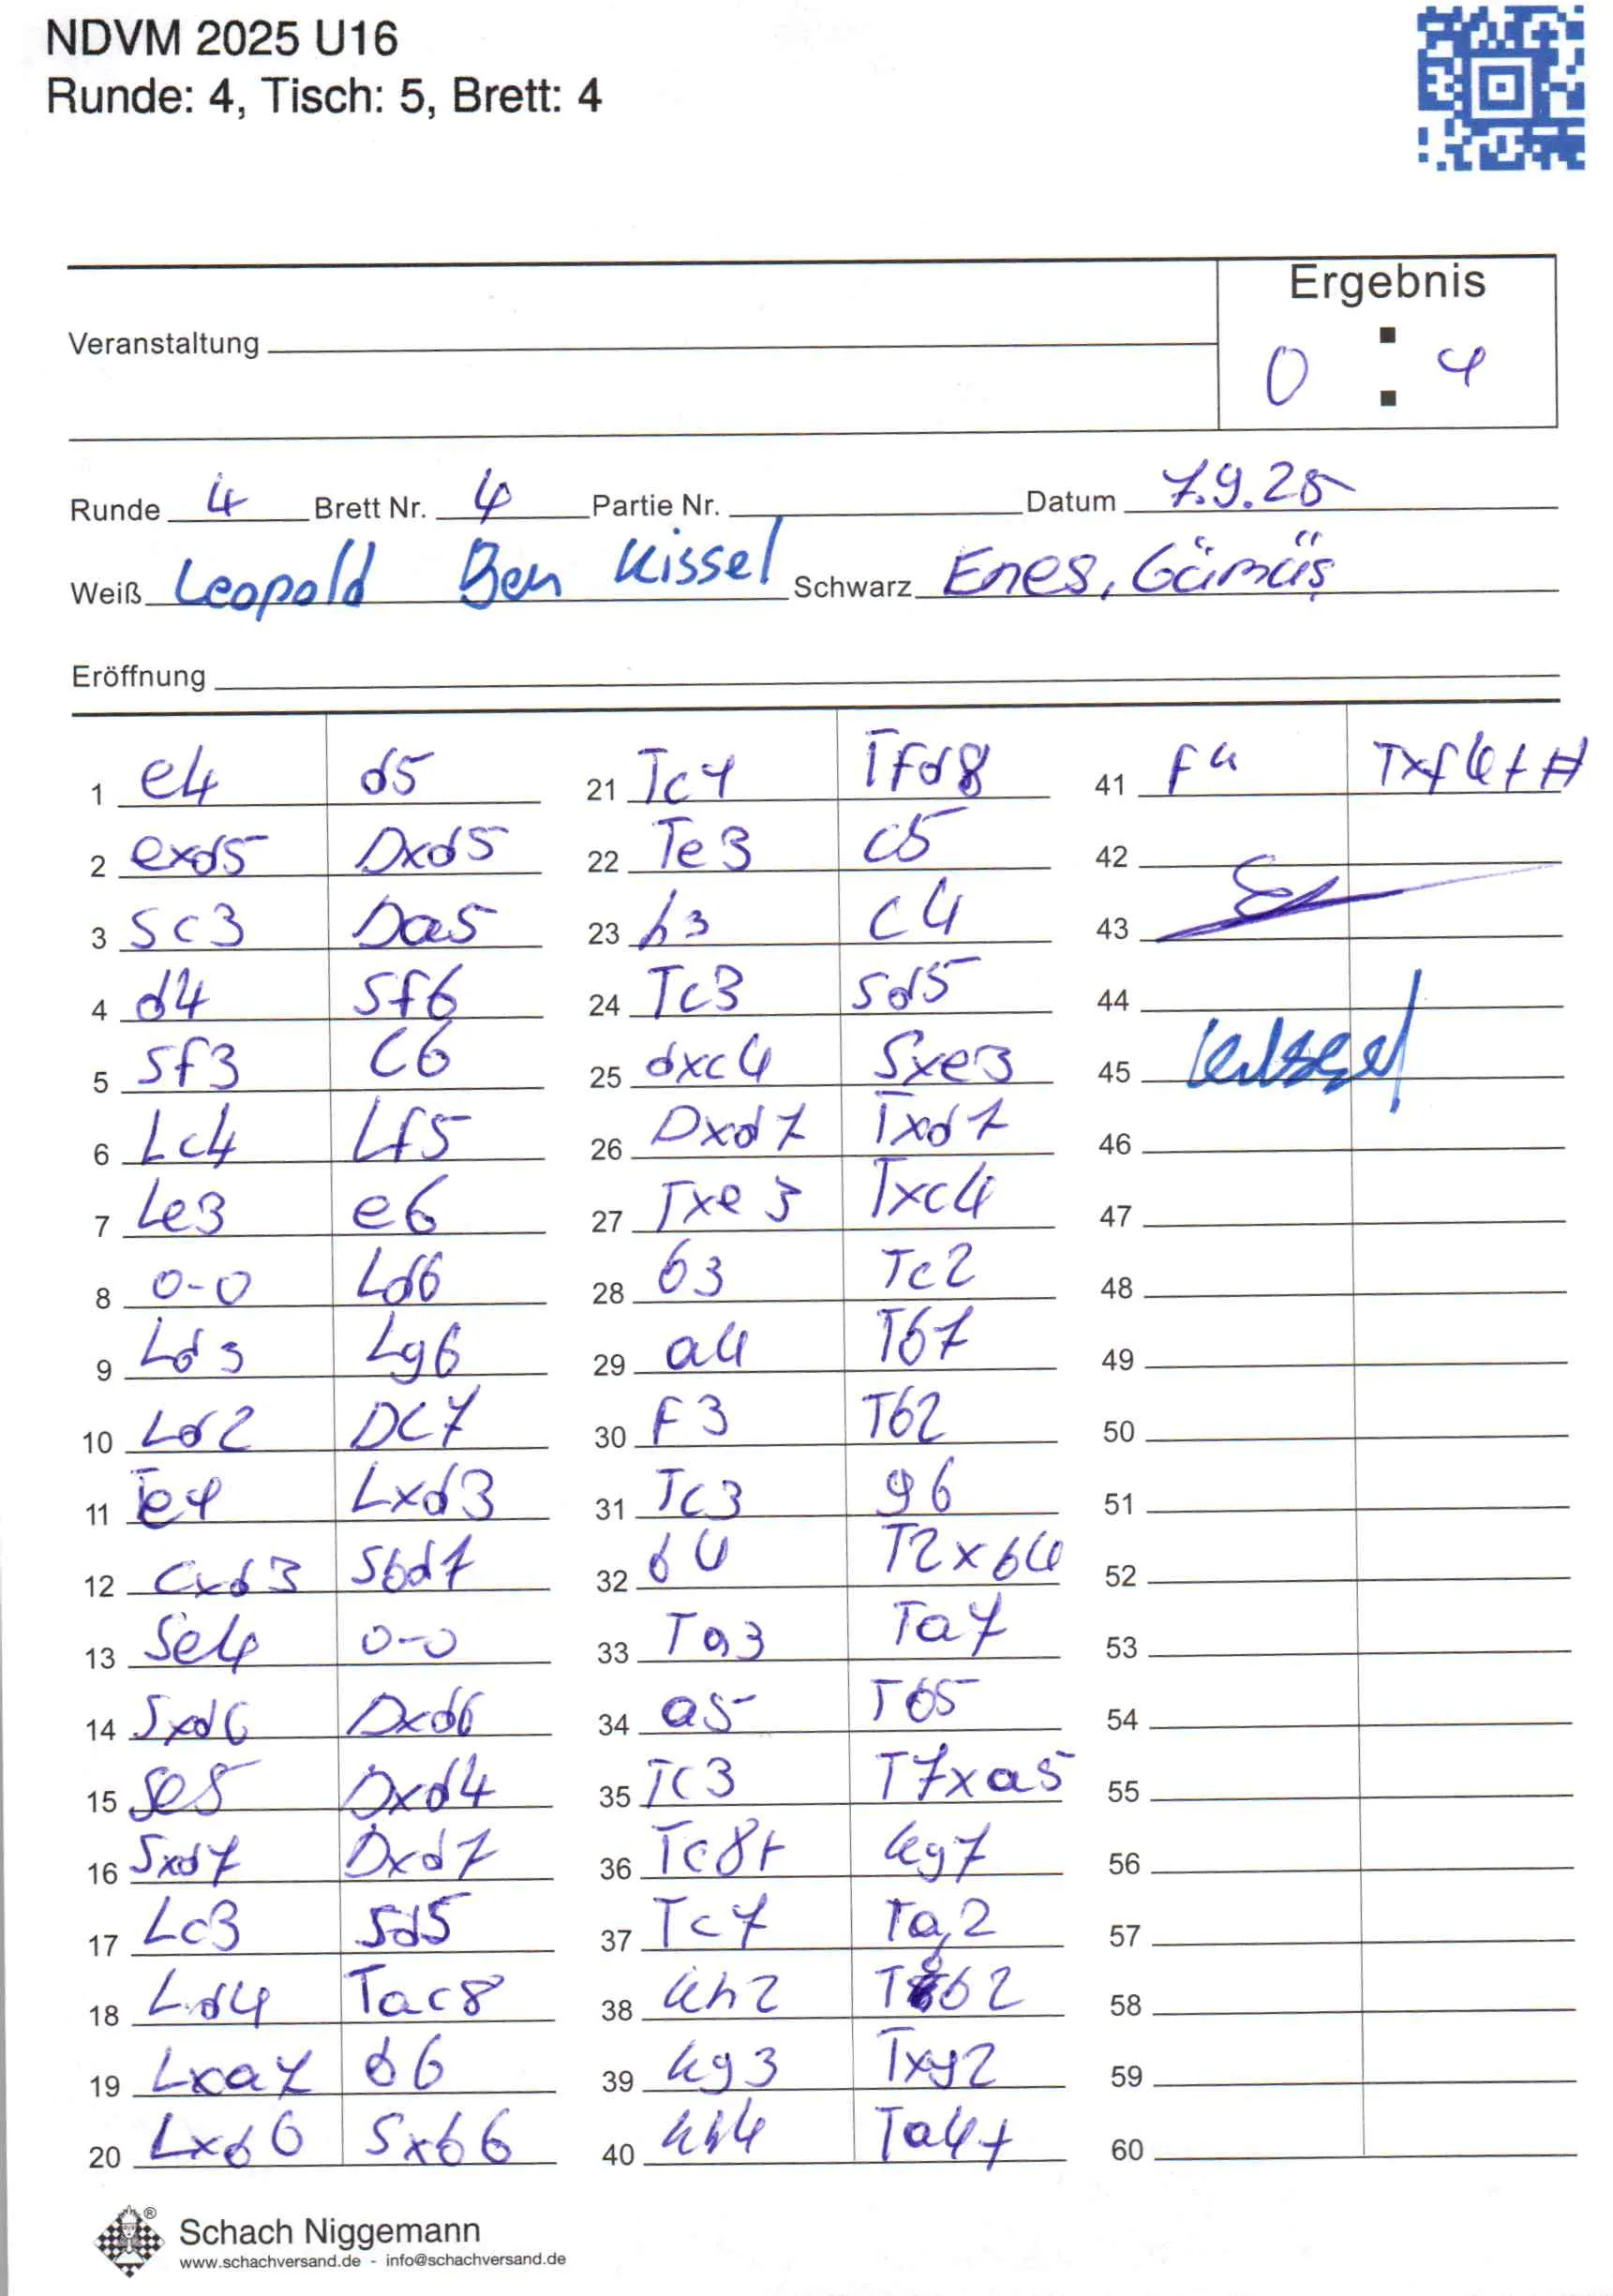 NDVM 2025 U16
Runde: 4, Tisch: 5, Brett: 4
Ergebnis
Veranstaltung
0 : 1
Runde 4 Brett Nr. 4 Partie Nr. Datum 7.9.25
Weiß Leopold Ben Kissel Schwarz Enes, Gümüş
Eröffnung
1 e4 d5
2 exd5 Dxd5
3 Sc3 Da5
4 d4 Sf6
5 Sf3 C6
6 Lc4 Lf5
7 Le3 e6
8 0-0 Ld6
9 Ld3 Lg6
10 Ld2 DC7
11 Te1 Lxd3
12 cxd3 Sbd7
13 Se4 0-0
14 Sxd6 Dxd6
15 Se5 Dxd4
16 Sxd7 Dxd7
17 Lc3 Sd5
18 Ld4 Tac8
19 Lxa7 b6
20 Lxb6 Sxb6
21 Tc1 Tfd8
22 Te3 c5
23 h3 c4
24 Tc3 Sd5
25 dxc4 Sxe3
26 Dxd7 Txd7
27 Txe3 Txc4
28 b3 Tc2
29 a4 Tb7
30 F3 Tb2
31 Tc3 g6
32 b4 T2xb4
33 Ta3 Ta7
34 a5 Tb5
35 Tc3 T7xa5
36 Tc8+ Kg7
37 Tc7 Ta2
38 Kh2 Tbb2
39 Kg3 Txg2
40 Kh4 Ta4+
41 F4 Txf4+#
42
43
44
45 Kissel
46
47
48
49
50
51
52
53
54
55
56
57
58
59
60
Schach Niggemann
www.schachversand.de - info@schachversand.de